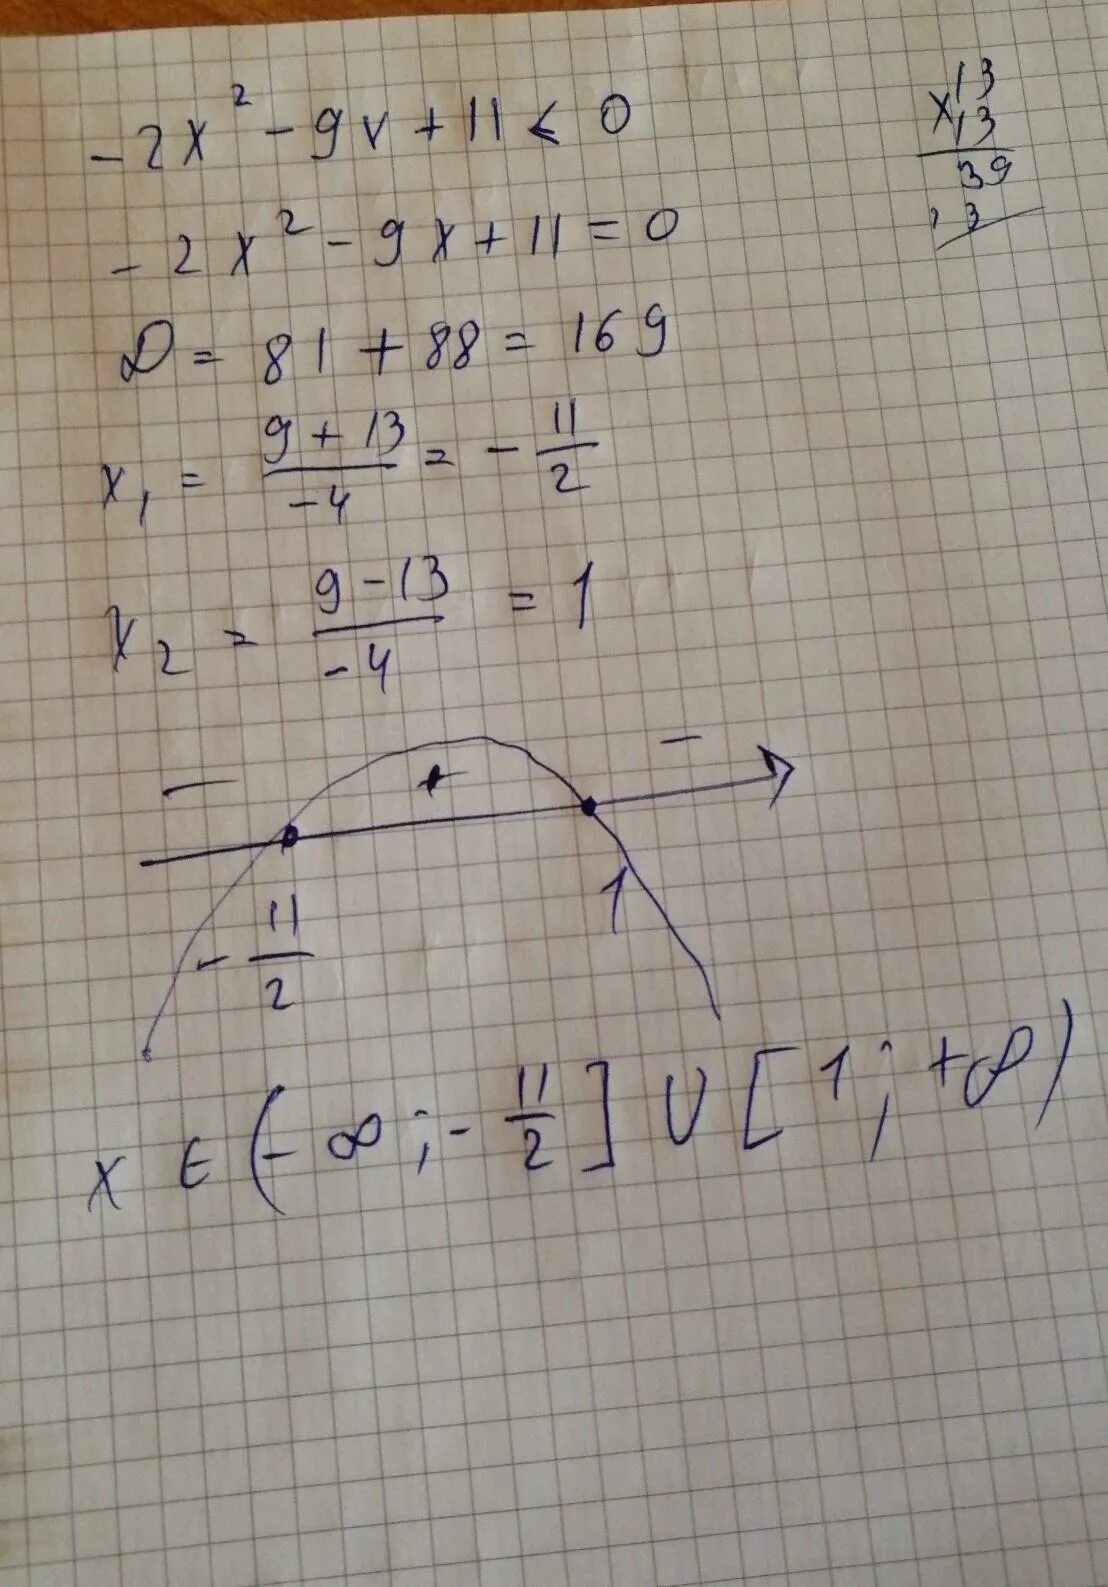 -2x² - 9x + 11 ≤ 0
-2x² - 9x + 11 = 0
D = 81 + 88 = 169
x₁ = (9 + 13)/(-4) = -11/2
x₂ = (9 - 13)/(-4) = 1
- + -
-11/2 1
x ∈ (-∞; -11/2] ∪ [1; +∞)
13
×13
39
13